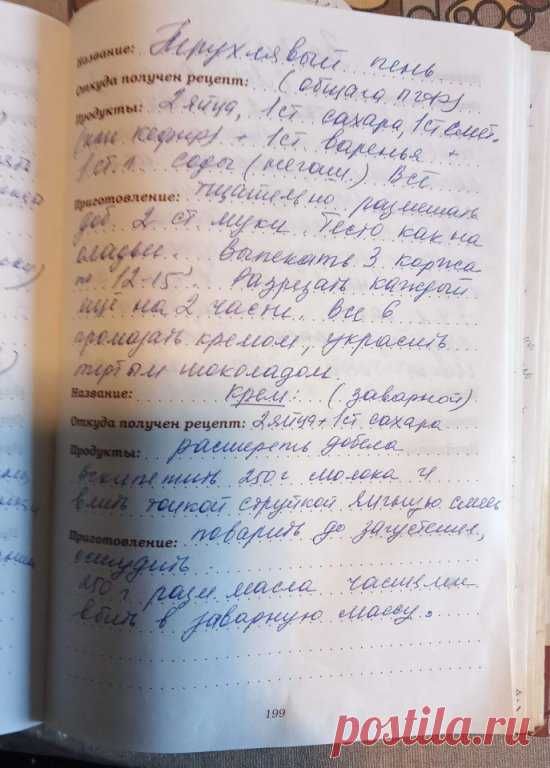 Название: Трухлявый пень
Откуда получен рецепт: (общага ПГФ)
Продукты: 2 яйца, 1 ст сахара, 1 ст смет.
(или кефир) + 1 ст. варенья +
1 ст. л. соды (негаш.) Всё
Приготовление: тщательно размешать
доб. 2 ст. муки. Тесто как на
оладьи. Выпекать 3 коржа
по 12-15' Разрезать каждый
ещё на 2 части. Все 6
промазать кремом, украсить
тёртым шоколадом.
Название: Крем: (заварной)
Откуда получен рецепт: 2 яйца + 1 ст. сахара
Продукты: растереть добела
вскипетить 250 г молока и
влить тонкой струйкой яичную смесь
Приготовление: поварить до загустения,
остудить.
250 г разм. масла частями
вбить в заварную массу.
199
postila.ru